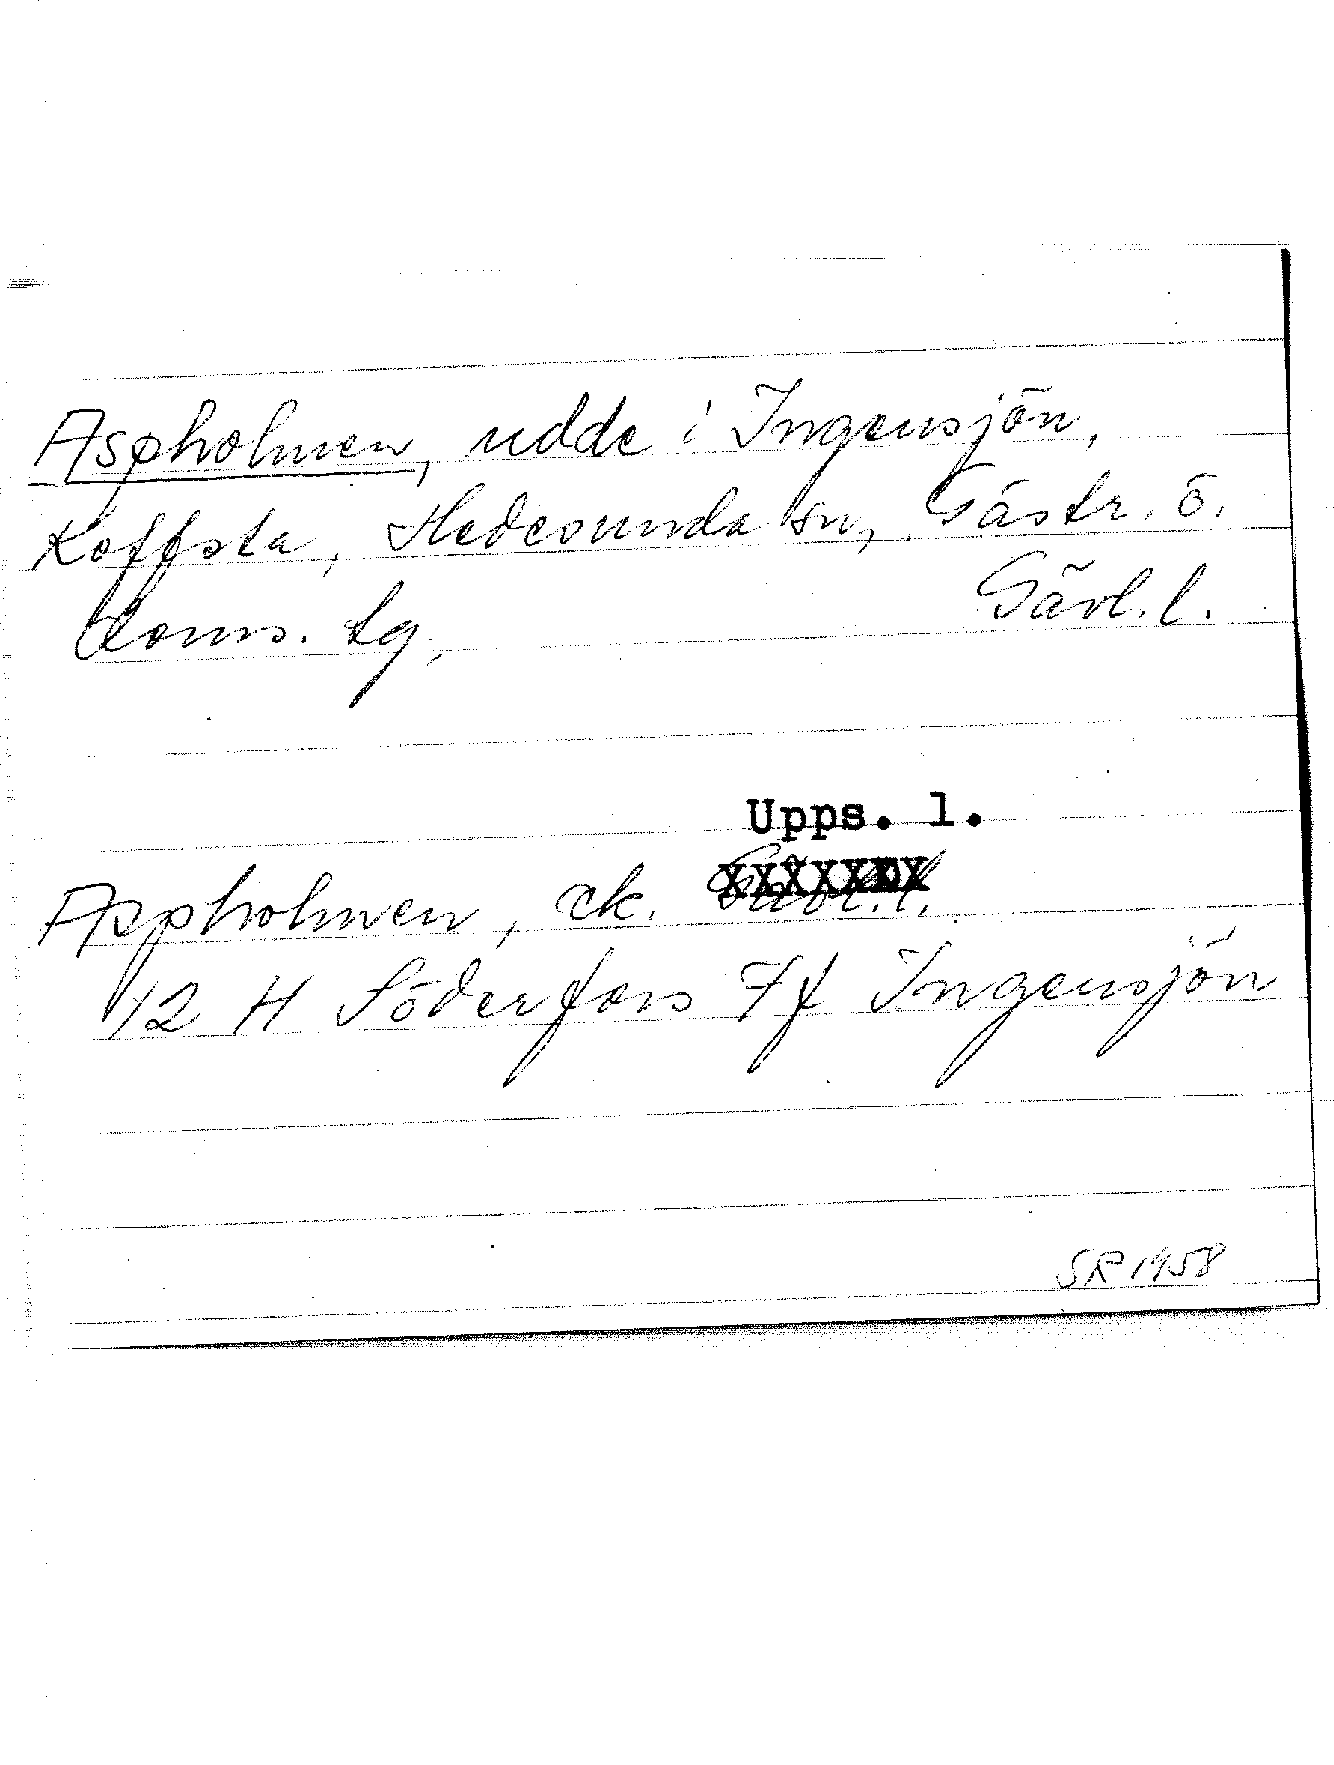 Aspholmen, udde i Ingensjön,
Koffsta, Hedesunda sn, Gästr. ö.
Gävl. l.
tg.
Upps. l.
Appholmen, ek. Gävl. l.
12 H Söderfors 7f Ingensjön
SR 1958